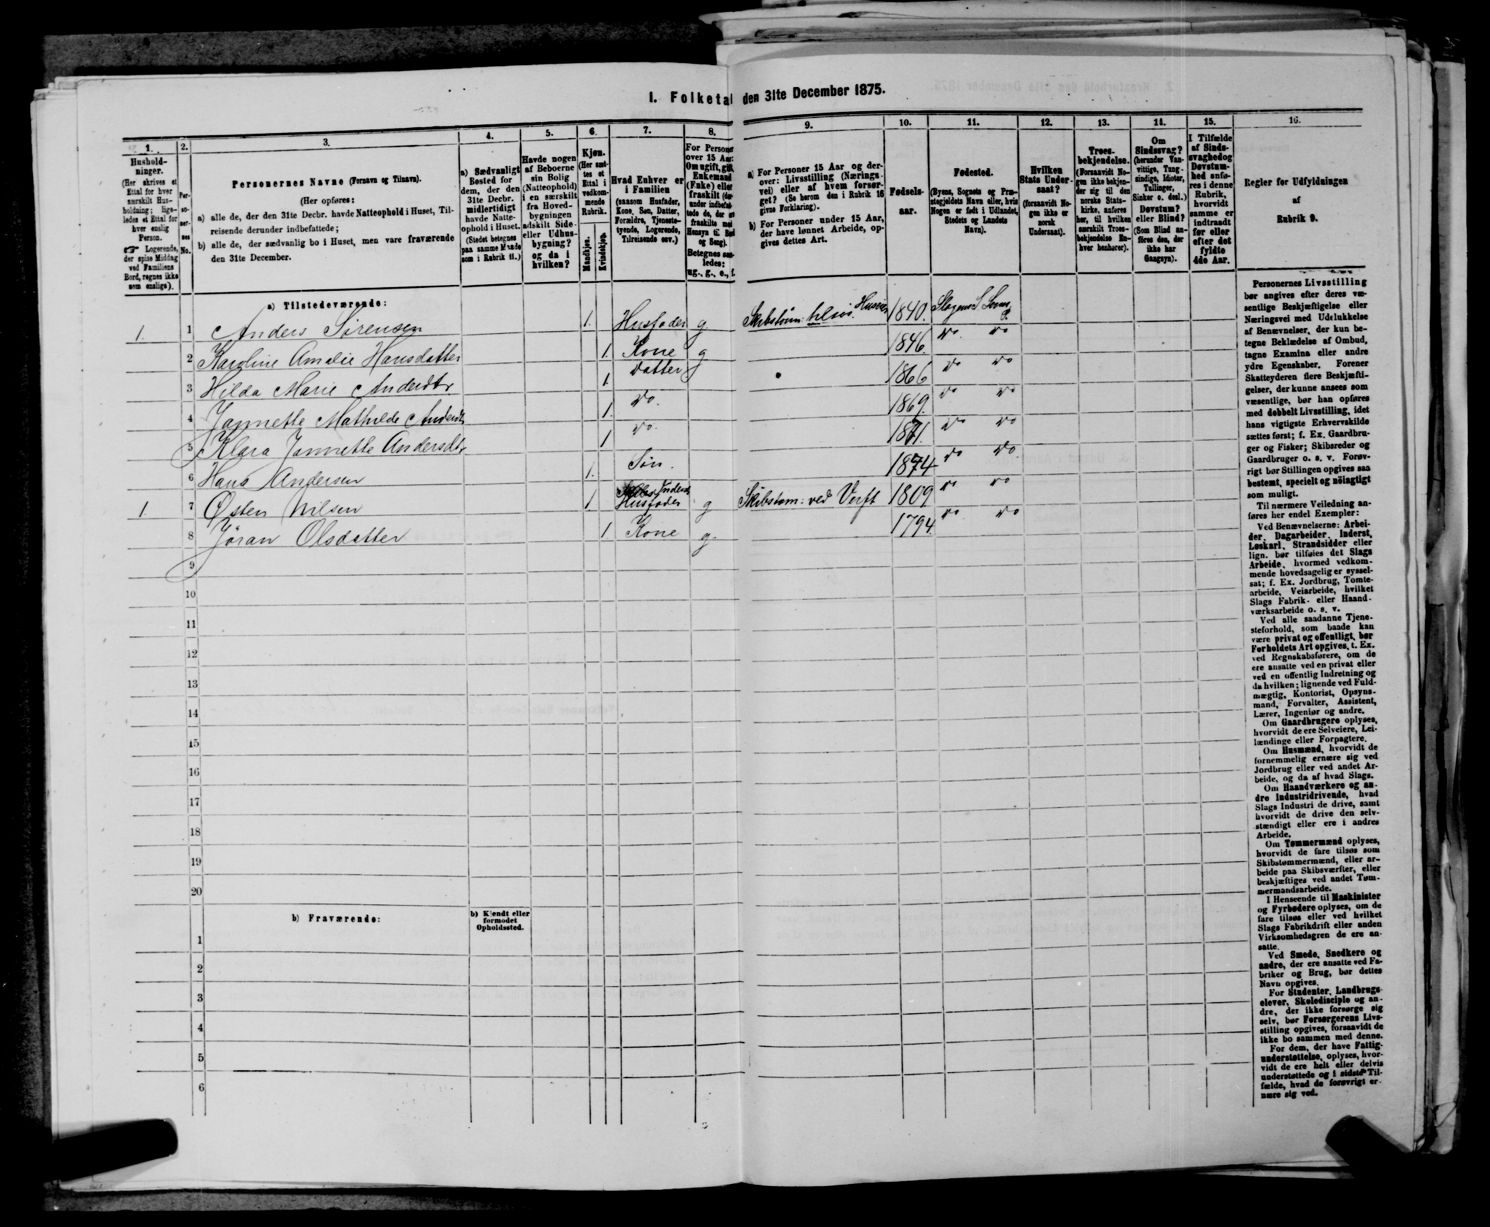 I. Folketal den 31te December 1875.
1. 2. 3. 4. 5. 6. 7. 8. 9. 10. 11. 12. 13. 14. 15. 16.
Husholdninger.
(Her skrives et Ettal for hver særskilt Husholdning; ligeledes et Ettal for hver enslig Person.
☞ Logerende, der spise Middag ved Familiens Bord, regnes ikke som enslige).
Personernes No.
Personernes Navne (Fornavn og Tilnavn).
(Her opføres:
a) alle de, der den 31te Decbr. havde Natteophold i Huset, Tilreisende derunder indbefattede;
b) alle de, der sædvanlig bo i Huset, men vare fraværende den 31te December.
a) Sædvanligt Bosted for dem, der den 31te Decbr. midlertidigt havde Natteophold i Huset.
(Stedet betegnes paa samme Maade som i Rubrik 11.)
Havde nogen af Beboerne sin Bolig (Natteophold) i en særskilt fra Hovedbygningen adskilt Side- eller Udhusbygning? og da i hvilken?
Kjøn.
(Her sættes et Ettal i vedkommende Rubrik.
Mandkjøn.
Kvindekjøn.
Hvad Enhver er i Familien
(saasom Husfader, Kone, Søn, Datter, Forældre, Tjenestetyende, Logerende, Tilreisende osv.)
For Personer over 15 Aar: Om ugift, gift, Enkemand (Enke) eller fraskilt
Betegnes saaledes:
ug., g., e., f.
a) For Personer 15 Aar og derover: Livsstilling (Næringsvei) eller af hvem forsørget? (Se herom den i Rubrik 16 givne Forklaring).
b) For Personer under 15 Aar, der have lønnet Arbeide, opgives dettes Art.
Fødselsaar.
Fødested.
(Byens, Sognets og Præstegjeldets Navn eller, hvis Nogen er født i Udlandet, Stedets og Landets Navn).
Hvilken Stats Undersaat?
(forsaavidt Nogen ikke er norsk Undersaat).
Troesbekjendelse.
(Forsaavidt Nogen ikke bekjender sig til den norske Statskirke, anføres her, til hvilken særskilt Troesbekjendelse Enhver henhører).
Om Sindssvag?
(herunder Vanvittige, Tungsindige, Idioter, Tullinger, Sinker o. desl.)
Døvstum? eller Blind?
(Som Blind anføres den, der ikke har Gangsyn).
I Tilfælde af Sindssvaghed og Døvstumhed anføres i denne Rubrik, hvorvidt samme er indtraadt før eller efter det fyldte 4de Aar.
Regler for Udfyldningen
af
Rubrik 9.
a) Tilstedeværende:
1 1 Anders Sørensen 1. Husfader g Skibstøm: 1840.
2 Karoline Amalie Hansdatter 1. Kone g 1846. Do Do
3 Hilda Marie Andersdtr 1 Datter 1866 Do Do
4 Jannette Mathilde Andersdtr 1. Do. 1869. Do Do
5 Klara Jannette Andersdtr 1 Do. 1871. Do Do
6 Hans Andersen 1. Søn. 1874 Do Do
1 7 Østen Nilsen 1 Husfader g Skibstøm: ved Verft 1809 Do Do
8 Jøran Olsdatter 1 Kone g. 1794. Do Do
9
10
11
12
13
14
15
16
17
18
19
20
b) Fraværende:
b) Kjendt eller formodet Opholdssted.
1
2
3
4
5
6
Personernes Livsstilling
bør angives efter deres væ-
sentlige Beskjæftigelse eller
Næringsvei med Udelukkelse
af Benævnelser, der kun be-
tegne Beklædelse af Ombud,
tagne Examina eller andre
ydre Egenskaber. Forener
Skatteyderen flere Beskjæfti-
gelser, der kunne ansees som
væsentlige, bør han opføres
med dobbelt Livsstilling, idet
hans vigtigste Erhvervskilde
sættes først; f. Ex. Gaardbru-
ger og Fisker; Skibsreder og
Gaardbruger o. s. v. Forøv-
rigt bør Stillingen opgives saa
bestemt, specielt og nøiagtigt
som muligt.
Til nærmere Veiledning an-
føres her endel Exempler:
Ved Benævnelserne: Arbei-
der, Dagarbeider, Inderst,
Løskarl, Strandsidder eller
lign. bør tilføies det Slags
Arbeide, hvormed vedkom-
mende hovedsagelig er syssel-
sat; f. Ex. Jordbrug, Tomte-
arbeide, Veiarbeide, hvilket
Slags Fabrik- eller Haand-
værksarbeide o. s. v.
Ved alle saadanne Tjene-
steforhold, som baade kan
være privat og offentligt, bør
Forholdets Art opgives, t. Ex.
ved Regnskabsførere, om de
ere ansatte ved en privat eller
ved en offentlig Indretning og
da hvilken; lignende ved Fuld-
mægtig, Kontorist, Opsyns-
mand, Forvalter, Assistent,
Lærer, Ingeniør og andre.
Om Gaardbrugere oplyses,
hvorvidt de ere Selveiere, Lei-
lændinge eller Forpagtere.
Om Husmænd, hvorvidt de
fornemmelig ernære sig ved
Jordbrug eller ved andet Ar-
beide, og da af hvad Slags.
Om Haandværkere og an-
dre Industridrivende, hvad
Slags Industri de drive, samt
hvorvidt de drive den selv-
stændigt eller ere i andres
Arbeide.
Om Tømmermænd oplyses,
hvorvidt de fare tilsøs som
Skibstømmermænd, eller ar-
beide paa Skibsværfter, eller
beskjæftiges ved andet Tøm-
mermandsarbeide.
I Henseende til Maskinister
og Fyrbødere oplyses, om de
fare tilsøs eller ved hvilket
Slags Fabrikdrift eller anden
Virksomhedsgren de ere an-
satte.
Ved Smede, Snedkere og
andre, der ere ansatte ved Fa-
briker og Brug, bør dettes
Navn opgives.
For Studenter, Landbrugs-
elever, Skoledisciple og an-
dre, der ikke forsørge sig
selv, bør Forsørgerens Livs-
stilling opgives, forsaavidt de
ikke bo sammen med denne.
For dem, der have Fattig-
understøttelse, oplyses, hvor-
vidt de ere helt eller delvis
understøttede og i sidste Til-
fælde, hvad de forøvrigt er-
nære sig ved.